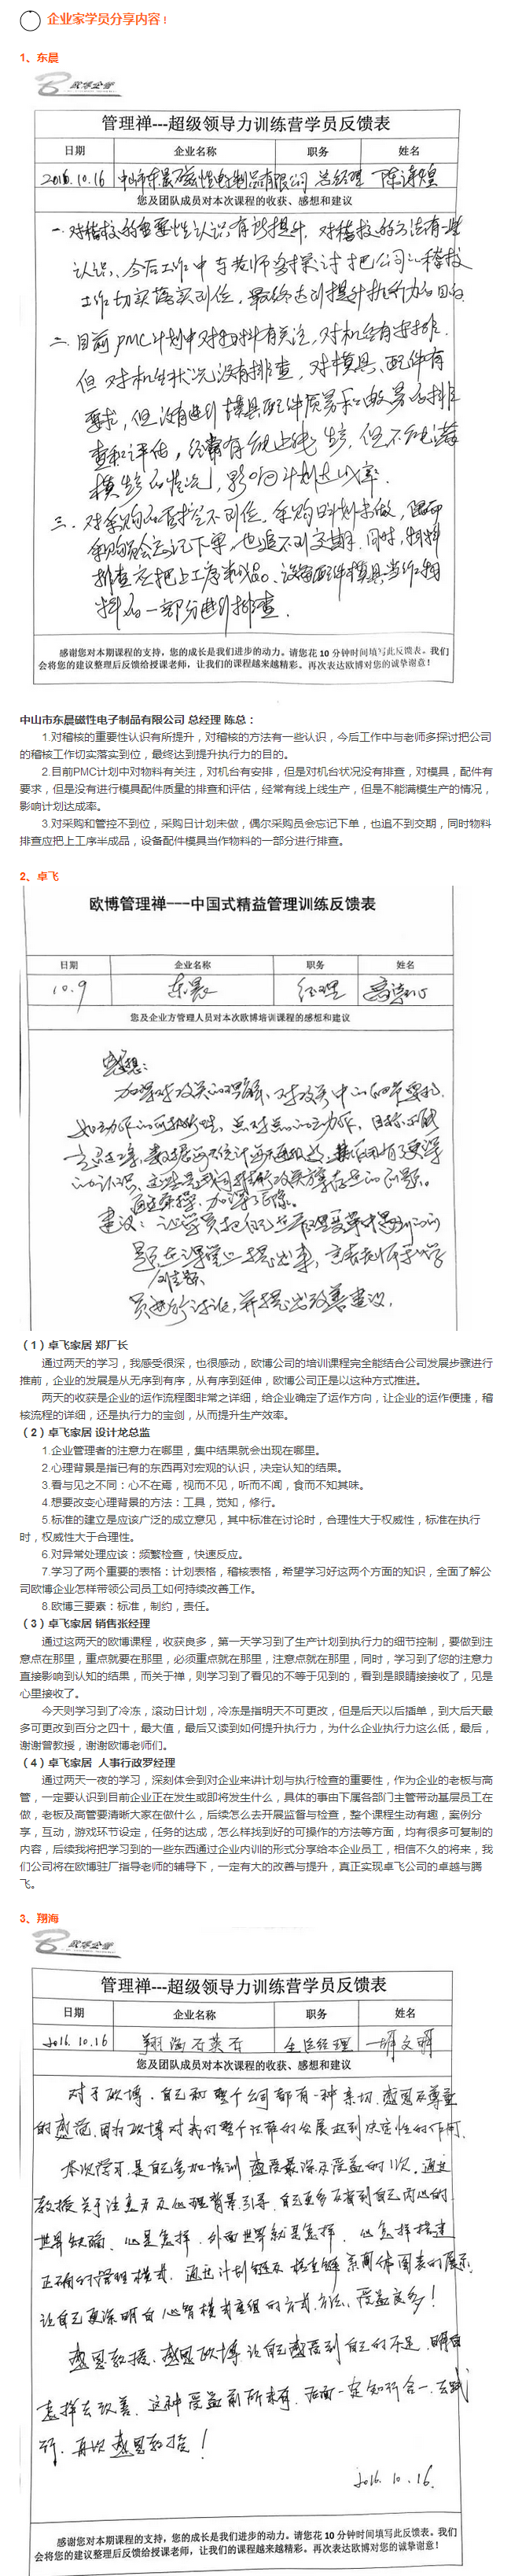 企业家学员分享内容！
1、东晨
欧博企管
管理禅---超级领导力训练营学员反馈表
日期 企业名称 职务 姓名
2016.10.16 中山市东晨磁性电子制品有限公司 总经理
您及团队成员对本次课程的收获、感想和建议
一.对稽核的重要性认识有所提升，对稽核的方法有一些
认识，今后工作中与老师多探讨把公司的稽核
工作切实落实到位，最终达到提升执行力的目的.
二.目前PMC计划中对物料有关注，对机台有安排.
但对机台状况没有排查，对模具、配件有
要求，但没有进行模具配件质量的排
查和评估，经常有线上线生产，但不能满
模生产的情况，影响计划达成率.
三.对采购和管控不到位，采购日计划未做，偶尔
采购员会忘记下单，也追不到交期，同时，物料
排查应把上工序半成品、设备配件模具当作物
料的一部分进行排查.
感谢您对本期课程的支持，您的成长是我们进步的动力。请您花 10 分钟时间填写此反馈表。我们
会将您的建议整理后反馈给授课老师，让我们的课程越来越精彩。再次表达欧博对您的诚挚谢意！
中山市东晨磁性电子制品有限公司 总经理 陈总：
1.对稽核的重要性认识有所提升，对稽核的方法有一些认识，今后工作中与老师多探讨把公司
的稽核工作切实落实到位，最终达到提升执行力的目的。
2.目前PMC计划中对物料有关注，对机台有安排，但是对机台状况没有排查，对模具，配件有
要求，但是没有进行模具配件质量的排查和评估，经常有线上线生产，但是不能满模生产的情况，
影响计划达成率。
3.对采购和管控不到位，采购日计划未做，偶尔采购员会忘记下单，也追不到交期，同时物料
排查应把上工序半成品，设备配件模具当作物料的一部分进行排查。
2、卓飞
欧博管理禅---中国式精益管理训练反馈表
日期 企业名称 职务 姓名
10.9 东晨 经理
您及企业方管理人员对本次欧博培训课程的感想和建议
感想：
加深对攻关的理解，对攻关中的细节要求，
建议：让学员把自己在管理变革中遇到的问
题在课堂上提出来，
员进行讨论，并提出改善建议.
（1）卓飞家居 郑厂长
通过两天的学习，我感受很深，也很感动，欧博公司的培训课程完全能结合公司发展步骤进行
推前，企业的发展是从无序到有序，从有序到延伸，欧博公司正是以这种方式推进。
两天的收获是企业的运作流程图非常之详细，给企业确定了运作方向，让企业的运作便捷，稽
核流程的详细，还是执行力的宝剑，从而提升生产效率。
（2）卓飞家居 设计龙总监
1.企业管理者的注意力在哪里，集中结果就会出现在哪里。
2.心理背景是指已有的东西再对宏观的认识，决定认知的结果。
3.看与见之不同：心不在焉，视而不见，听而不闻，食而不知其味。
4.想要改变心理背景的方法：工具，觉知，修行。
5.标准的建立是应该广泛的成立意见，其中标准在讨论时，合理性大于权威性，标准在执行
时，权威性大于合理性。
6.对异常处理应该：频繁检查，快速反应。
7.学习了两个重要的表格：计划表格，稽核表格，希望学习好这两个方面的知识，全面了解公
司欧博企业怎样带领公司员工如何持续改善工作。
8.欧博三要素：标准，制约，责任。
（3）卓飞家居 销售张经理
通过这两天的欧博课程，收获良多，第一天学习到了生产计划到执行力的细节控制，要做到注
意点在那里，重点就要在那里，必须重点就在那里，注意点就在那里，同时，学习到了您的注意力
直接影响到认知的结果，而关于禅，则学习到了看见的不等于见到的，看到是眼睛接接收了，见是
心里接收了。
今天则学习到了冷冻，滚动日计划，冷冻是指明天不可更改，但是后天以后插单，到大后天最
多可更改到百分之四十，最大值，最后又读到如何提升执行力，为什么企业执行力这么低，最后，
谢谢曾教授，谢谢欧博老师们。
（4）卓飞家居 人事行政罗经理
通过两天一夜的学习，深刻体会到对企业来讲计划与执行检查的重要性，作为企业的老板与高
管，一定要认识到目前企业正在发生或即将发生什么，具体的事由下属各部门主管带动基层员工在
做，老板及高管要清晰大家在做什么，后续怎么去开展监督与检查，整个课程生动有趣，案例分
享，互动，游戏环节设定，任务的达成，怎么样找到好的可操作的方法等方面，均有很多可复制的
内容，后续我将把学习到的一些东西通过企业内训的形式分享给本企业员工，相信不久的将来，我
们公司将在欧博驻厂指导老师的辅导下，一定有大的改善与提升，真正实现卓飞公司的卓越与腾
飞。
3、翔海
欧博企管
管理禅---超级领导力训练营学员反馈表
日期 企业名称 职务 姓名
2016.10.16 翔海石英石 生产经理 胡文明
您及团队成员对本次课程的收获、感想和建议
对于欧博，自己和整个公司都有一种亲切、感恩及尊重
的感觉，因为欧博对我们整个运营的发展起到决定性的作用.
本次学习，是自己参加培训，感受最深及受益的1次，通过
教授关于注意力及心理背景引导，自己更多反省到自己内心的
世界缺陷，心是怎样，外面世界就是怎样，心怎样搭建
正确的管理模式，通过计划链及稽查链系列体图表的展示，
让自己更深明白心智模式重组的方式、方法，受益良多！
感恩教授、感恩欧博，让自己感恩到自己的不足，明白
怎样去改善，这种受益前所未有，后面一定知行合一，去践
行，再次感恩教授！
2016.10.16.
感谢您对本期课程的支持，您的成长是我们进步的动力。请您花 10 分钟时间填写此反馈表。我们
会将您的建议整理后反馈给授课老师，让我们的课程越来越精彩。再次表达欧博对您的诚挚谢意！